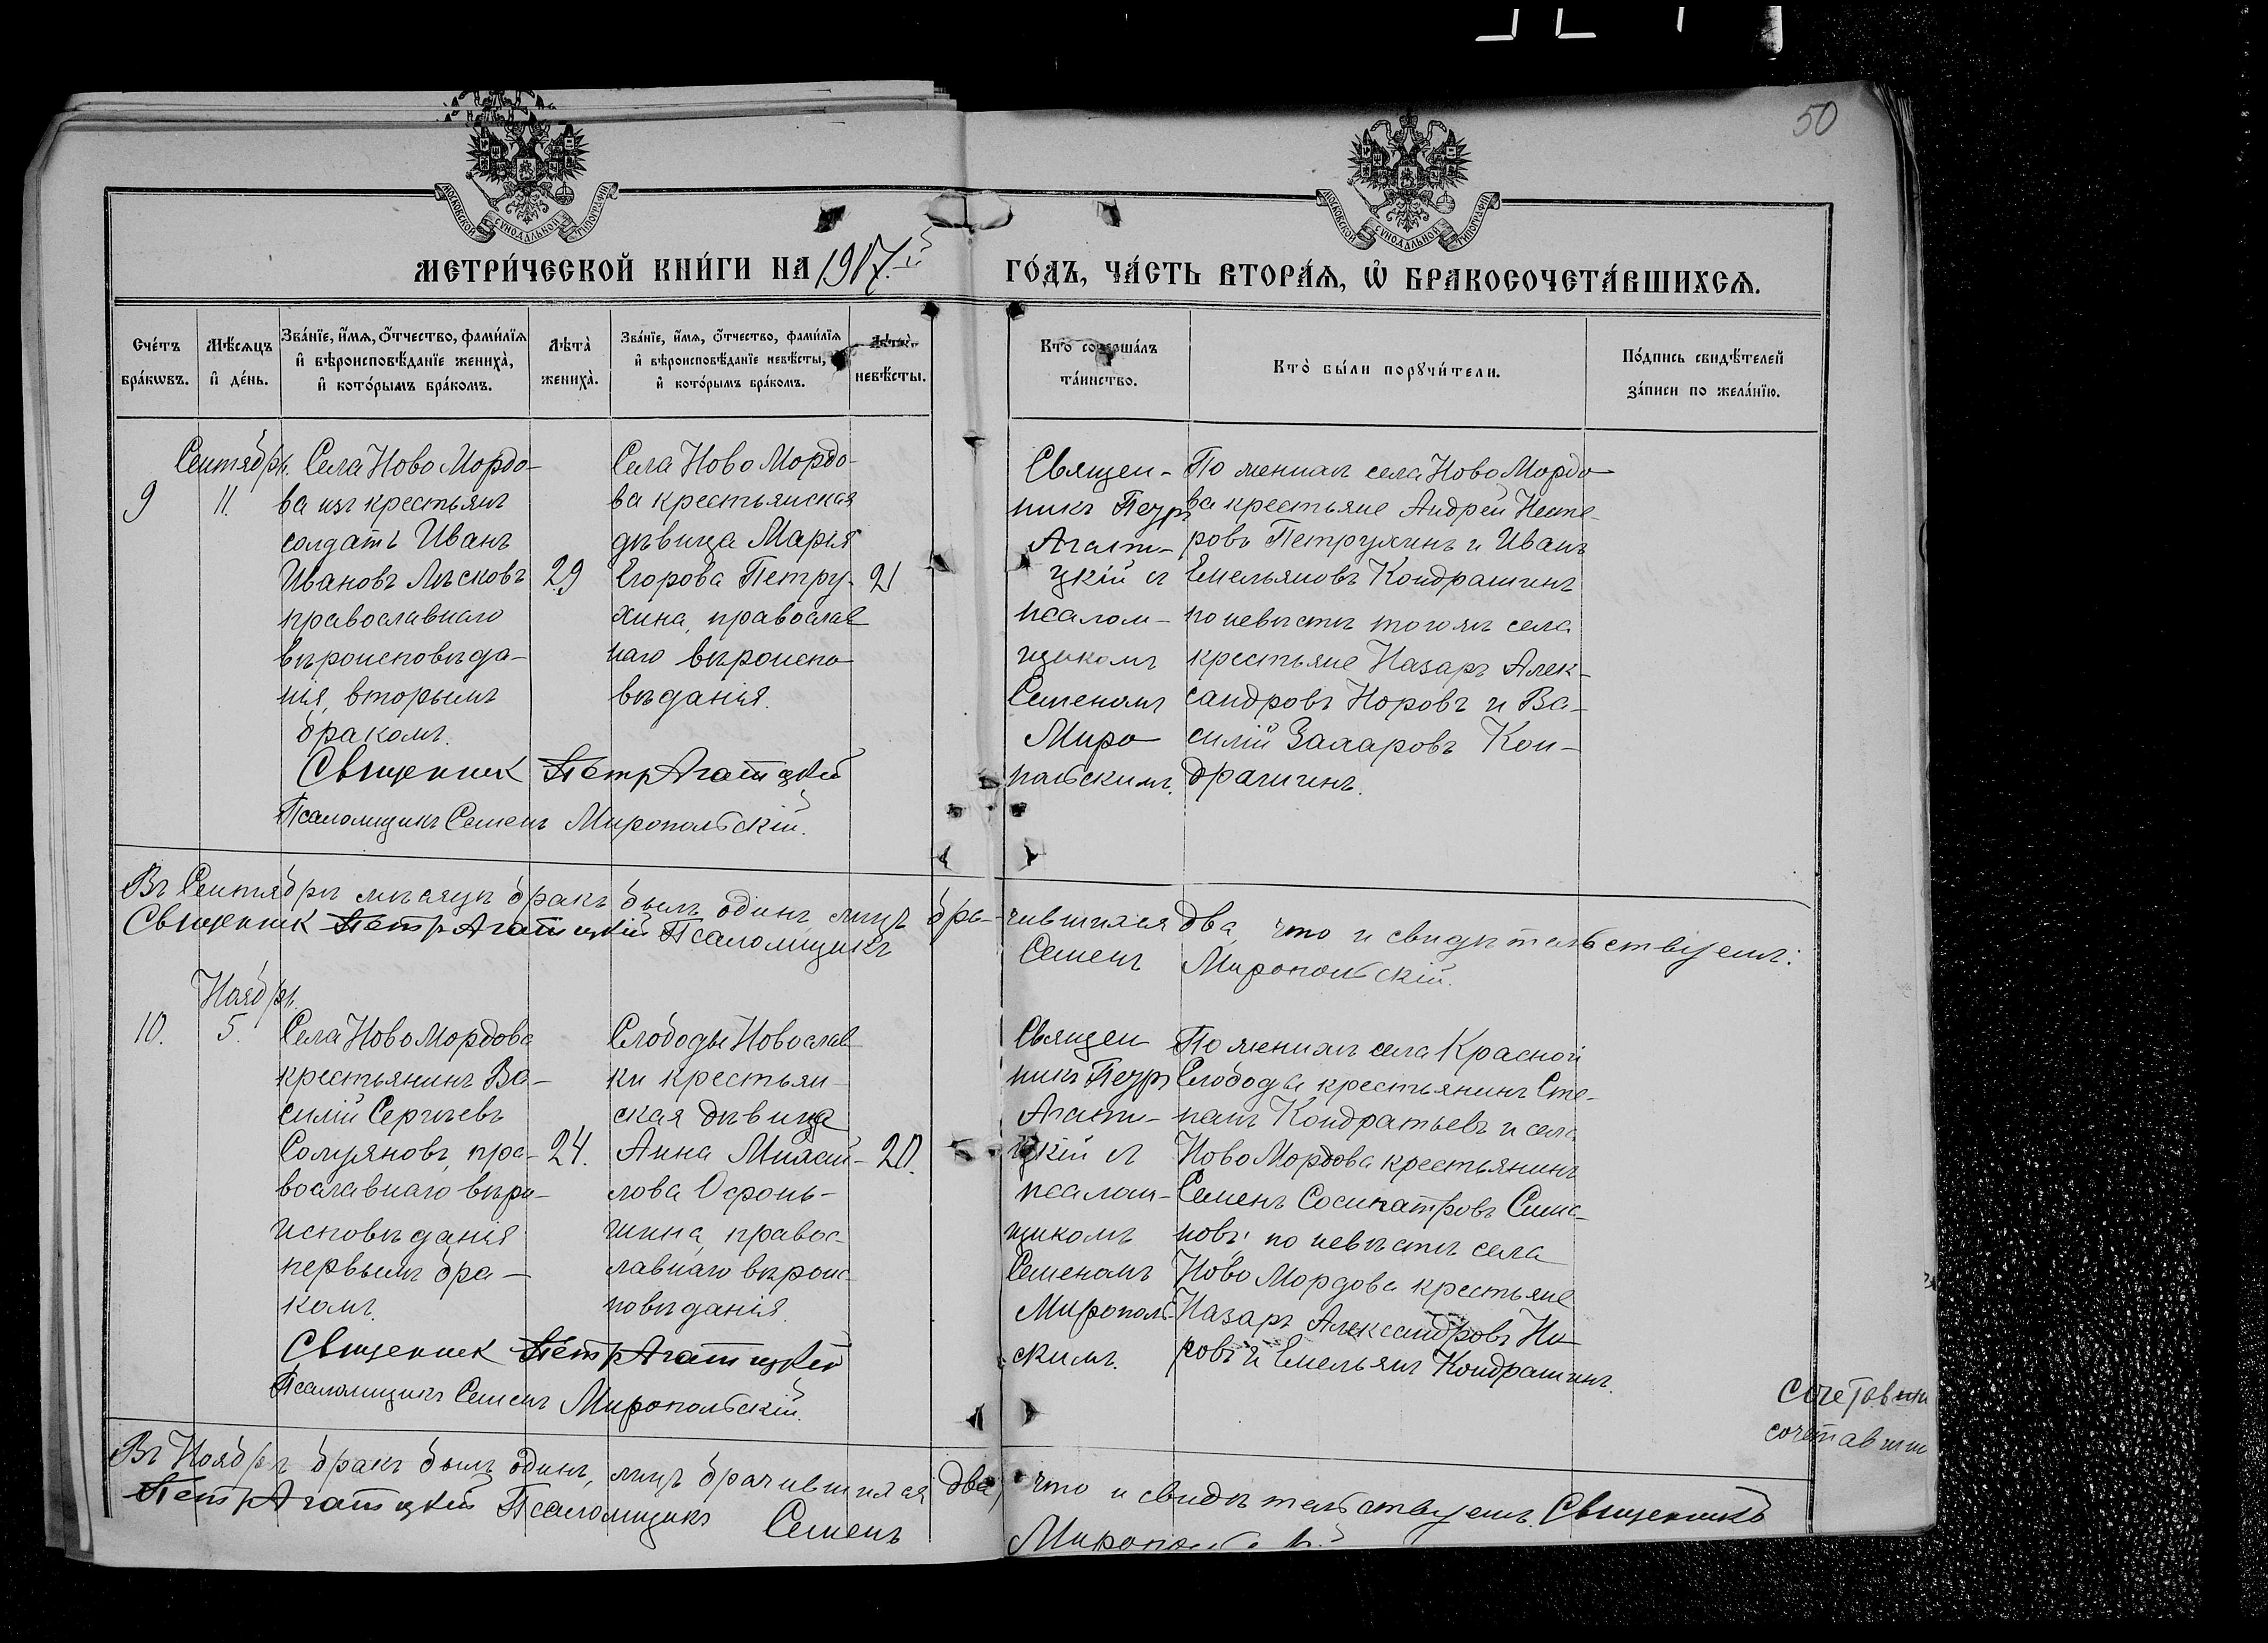 50
МОСКОВСКОЙ СѴНОДАЛЬНОЙ ТИПОГРАФІИ
МОСКОВСКОЙ СѴНОДАЛЬНОЙ ТИПОГРАФІИ
МЕТРИ́ЧЕСКОЙ КНИ́ГИ НА 1917.й ГО́ДЪ, ЧА́СТЬ ВТОРА́Ѧ, Ѽ БРАКОСОЧЕТА́ВШИХСѦ.
Сче́тъ
бра́кѡвъ.
Мѣ́сѧцъ
и҆ де́нь.
Зва́нїе, и҆́мѧ, ѻ҆́тчество, фами́лїѧ
и҆ вѣроисповѣ́данїе жениха̀,
и҆ кото́рымъ бра́комъ.
Лѣта̀
жениха̀.
Зва́нїе, и҆́мѧ, ѻ҆́тчество, фами́лїѧ
и҆ вѣроисповѣ́данїе невѣ́сты,
и҆ кото́рымъ бра́комъ.
Лѣта̀
невѣ́сты.
Кто̀ соверша́лъ
та́инство.
Кто̀ бы́ли порꙋчи́тели.
По́дпись свидѣ́телей
за́писи по жела́нїю.
9
Сентябрь.
11.
Села Ново Мордо-
ва изъ крестьянъ
солдатъ Иванъ
Ивановъ Лѣсковъ
православнаго
вѣроисповѣда-
нія, вторымъ
бракомъ.
29
Села Ново Мордо-
ва крестьянская
дѣвица Марія
Егорова Петру-
хина, православ
наго вѣроиспо
вѣданія.
21
Священ-
никъ Петръ
Агати-
цкій и
псалом-
щикомъ
Семеномъ
Миро
польскимъ.
По женихѣ села Ново Мордо
ва крестьяне Андрей Несте-
ровъ Петрухинъ и Иванъ
Емельяновъ Кондрашинъ
по невѣстѣ тогожъ села
крестьяне Назаръ Алек-
сандровъ Норовъ и Ва-
силій Захаровъ Кон-
драшинъ.
Священник Петр Агатицкій
Псаломщикъ Семенъ Миропольскій.
Въ Сентябрѣ мѣсяцѣ бракъ былъ одинъ, лицъ бра-чившихся два, что и свидѣтельствуемъ:
Священник Петр Агатицкій Псаломщикъ Семенъ Миропольскій.
10.
Ноябрь.
5.
Села Ново Мордова
крестьянинъ Ва-
силій Сергѣевъ
пра-
вославнаго вѣро-
исповѣданія
первымъ бра-
комъ.
24.
Слободы Новослав
ки крестьян-
ская дѣвица
Анна Михай-
лова Офонь-
шина, правос-
лавнаго вѣроис
повѣданія.
20.
Священ
никъ Петръ
Агати-
цкій и
псалом-
щикомъ
Семеномъ
Мирополь-
скимъ.
По женихѣ села Красной
Слободы крестьянинъ Сте-
панъ Кондратьевъ и села
Ново Мордова крестьянинъ
Семенъ Сосипатровъ Симо-
новъ; по невѣстѣ села
Ново Мордова крестьяне
Назаръ Александровъ Но
ровъ и Емельянъ Кондрашинъ.
Священник Петр Агатицкій
Псаломщикъ Семенъ Миропольскій.
сочетавши
сочетавши
Въ Ноябрѣ бракъ былъ одинъ, лицъ брачившихся два, что и свидѣтельствуемъ. Священникъ
Петр Агатицкій Псаломщикъ Семенъ